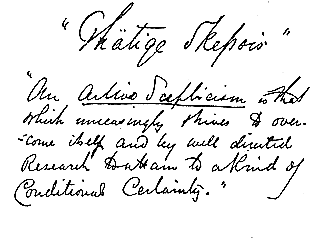 "Thätige Skepsis"
"An Active Scepticism is that
which unceasingly strives to over-
-come itself and by well directed
Research to attain to a Kind of
Conditional Certainty."